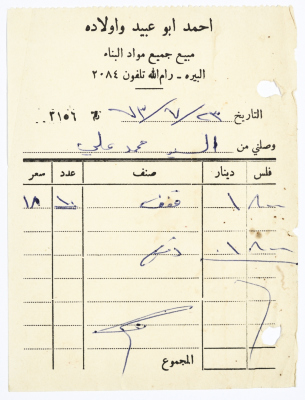 احمد ابو عبيد واولاده
مبيع جميع مواد البناء
البيره - رام الله تلفون ٢٠٨٤
التاريخ ٢٣/٧/٧٣ ٣١٥٦
وصلني من السيد محمد علي
فلس دينار صنف عدد سعر
٨٠٠ ١ قفف ١٠ ١٨
٨٠٠ ١
المجموع